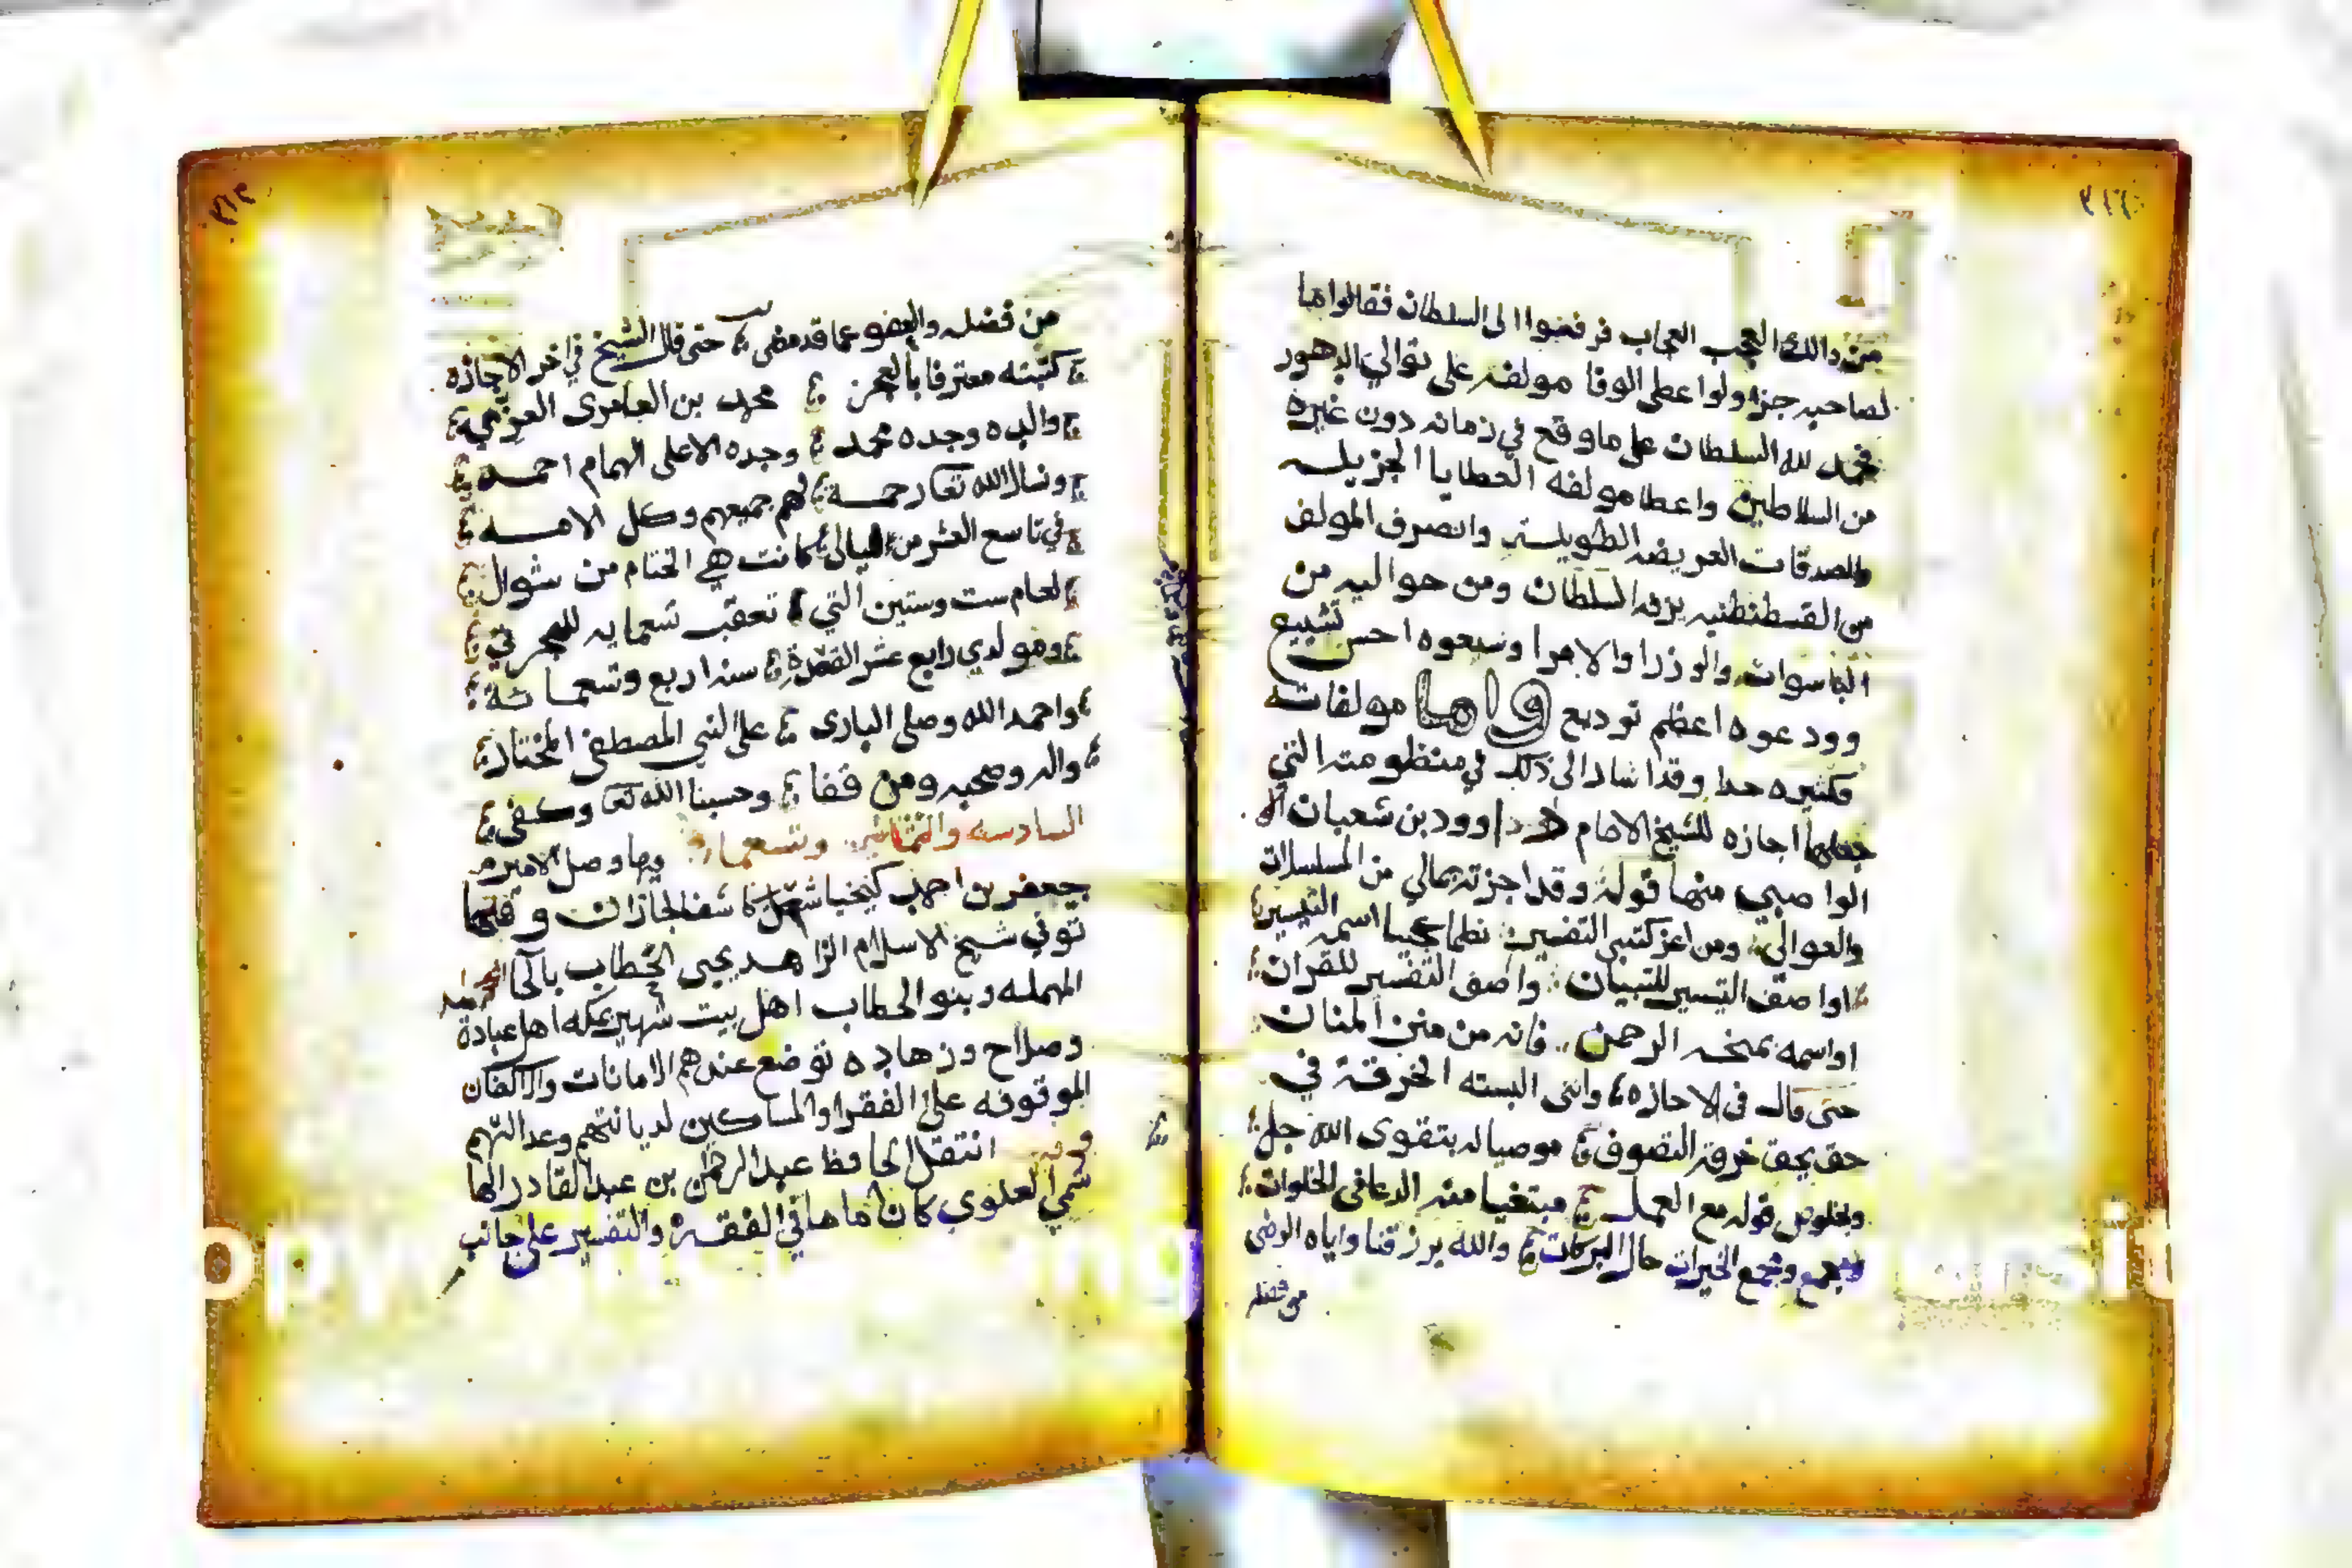 من ذالك العجب العجاب فرفعوا الى السلطان فقالوا ما
لصاحبه جزا ولو اعطى الوفا مولفه على توالي الدهور
فحمد لله السلطان على ما وقع في زمانه دون غيره
من السلاطين واعطا مولفه العطايا الجزيله
والصدقات العريضه الطويله وانصرف المولف
من القسطنطنيه بزفه السلطان ومن حواليه من
الباسوات والوزرا والامرا وشيعوه احسن تشييع
وودعوه اعظم توديع واما مولفاته
فكثيره جدا وقد اشار الى ذلك في منظومته التي
جعلها اجازه للشيخ الامام داوود بن شعبان
الواصبي منها قوله وقد اجزته بمالي من المسلسلات
والعوالي ومن اعز كتبي التفسير نظما عجيبا اسمه التيسير
او اصف التيسير للتبيان واصف التفسير للقران
او اسمه بمنحه الرحمن فانه من منن المنان
حتى قال في الاجازه وانني البسته الخرقة في
حق بحق خرقة التصوف موصيا له بتقوى الله جل
وبخلوص قوله مع العمل مبتغيا منه الدعا في الخلوات
وبجمع الخيرات حال البركات والله يرزقنا واياه الرضى
من فضله
من فضله والعفو عما قد مضى حتى قال الشيخ في اخر الاجازه
كتبته معترفا بالعجز محمد بن العامري الغزي
والده وجده محمد وجده الاعلى الهمام احمد
ونسال الله تعا رحمة لهم جميعهم وكل الامه
في تاسع العشر من الليالي كانت هي الختام من شوال
لعام ست وستين التي تعقب تسعمايه للهجرة
ومولدي رابع عشر القعدة سنه اربع وتسعمائة
واحمد الله وصلى الباري على النبي المصطفى المختار
واله وصحبه ومن قفا وحسبنا الله تعا وكفى
السادسه والثمانين وتسعمايه وبها وصل الامير
جعفر بن احمد كيخيا كاشف الجازان و
توفي شيخ الاسلام الزاهد يحيى الحطاب بالحا
المهمله وبنو الحطاب اهل بيت شهير بمكه اهل عبادة
وصلاح وزهاده توضع عندهم الامانات والاكفان
الموقوفه على الفقرا والمساكين لديانتهم وعدالتهم
وفيه انتقل الحافظ عبد الرحمن بن عبد القادر الها
شمي العلوي كان اماما في الفقه والتفسير على جانب